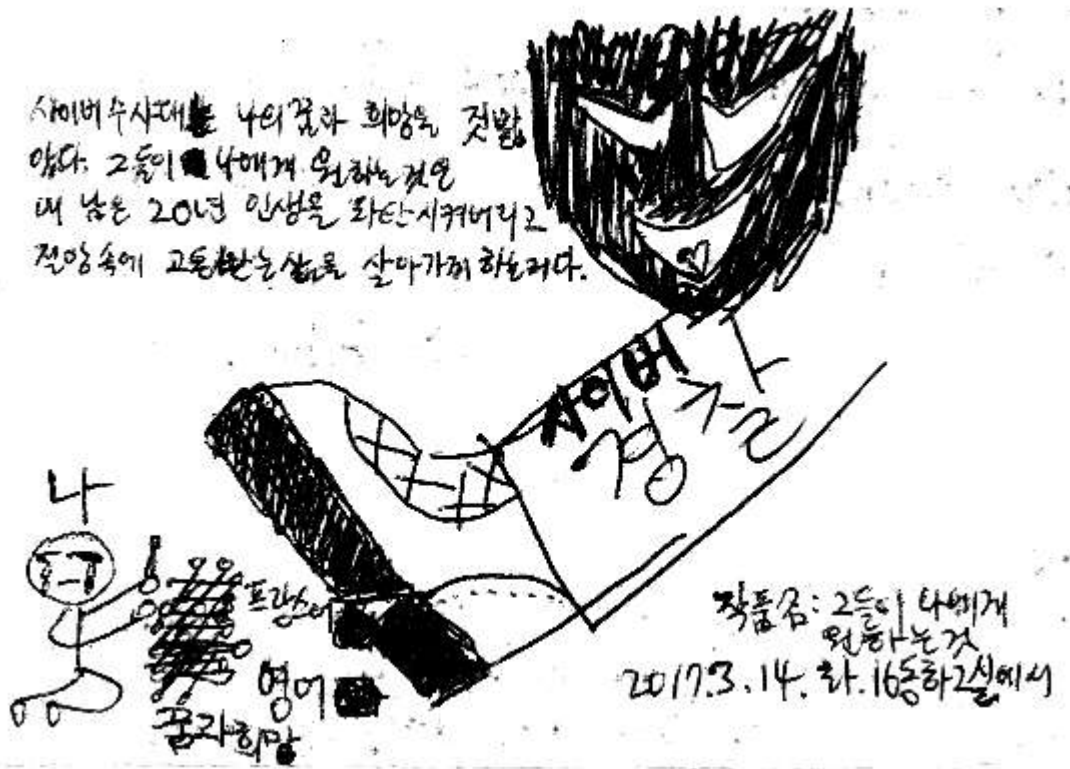 사이버수사대는 나의 꿈과 희망을 짓밟
았다. 그들이 나에게 원하는것은
내 남은 20년 인생을 파탄시켜버리고
절망속에 고통받는삶을 살아가게 하는거다.
사이버
경찰
나
프랑스어
영어
꿈과희망
작품금: 그들이 나에게
원하는것
2017.3.14. 화. 16동하2실에서